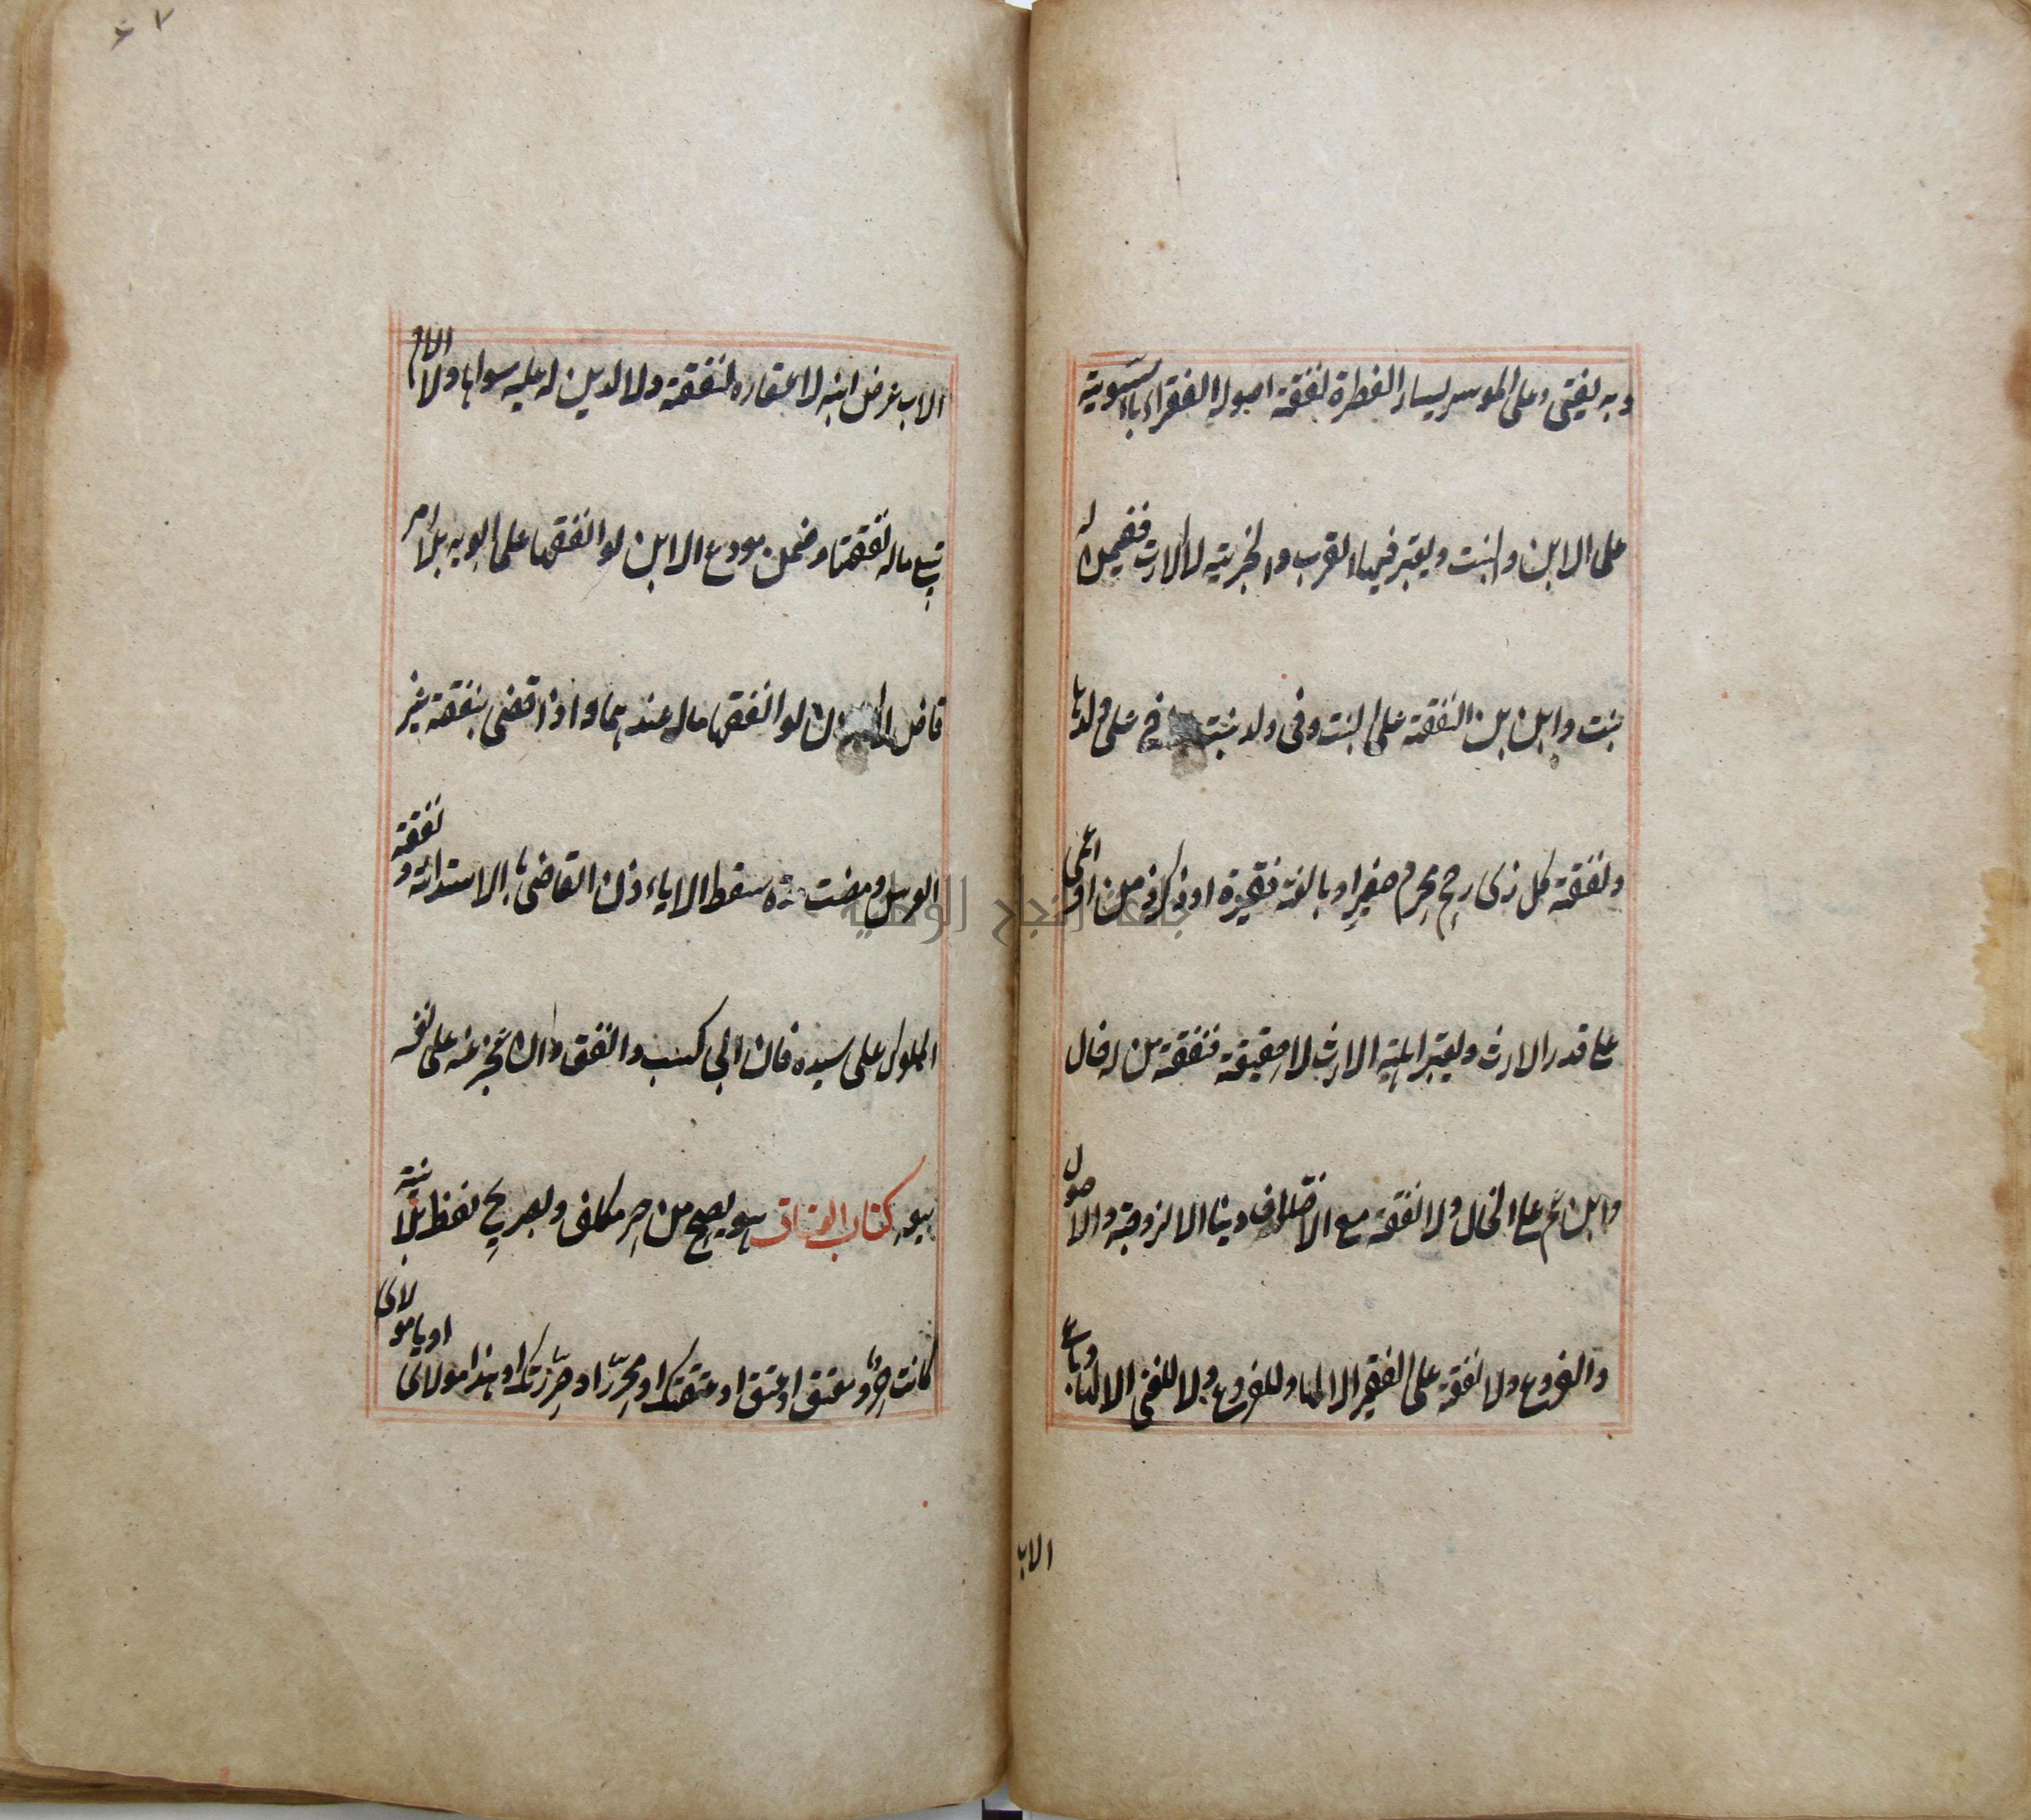 وبه يفتى وعلى الموسر يسار الفطرة نفقة اصوله الفقراء بالسوية
على الابن والبنت ويعتبر فيها القرب والجزئية لا الارث ففيمن له
بنت وابن بن النفقة على البنت وفى ولد بنت على ولدها
ونفقة كل ذى رحم محرم صغير او بالغة فقيرة او ذكر زمن او اعمى
على قدر الارث ويعتبر اهلية الارث لا حقيقة فنفقة من له خال
وابن عم على الخال ولا نفقة مع الاختلاف دينا الا لزوجة والاصول
والفروع ولا نفقة على الفقير الا لها وللفروع ولا للغنى الا لها وباع
الاب
٦٧
الاب عرض ابنه لا عقاره لنفقة ولا لدين له عليه سواها ولا الام
تبيع ماله لنفقتها وضمن مودع الابن لو انفقها على ابويه بلا امر
قاض لو انفقا ماله عندهما واذا قضى بنفقة غير
العرس ومضت مدة سقط الا ياءذن القاضى بالاستدانة ونفقة
المملوك على سيده فان ابى كسب وانفق وان عجز عنه على
بيع كتاب العتاق هو يصح من حر مكلف وبصريح لفظ بلا نية
كانت حر ومعتق او عتيق او عتقتك او محرر او حررتك او هذا مولاى او يا مولاى
جامعة النجاح الوطنية